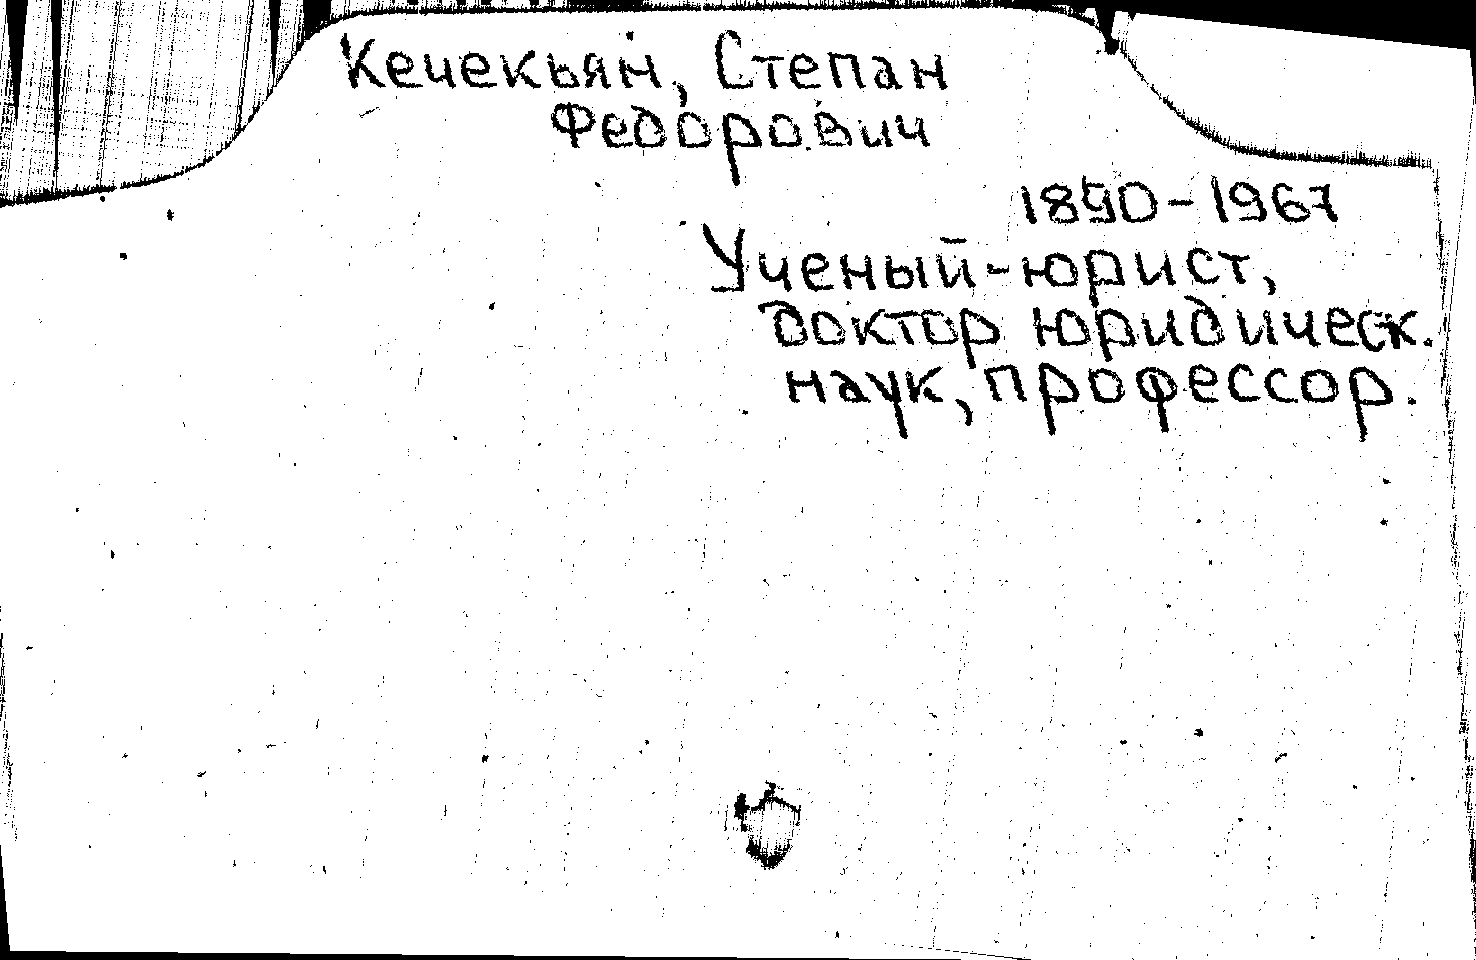 Кечекьян, Степан
Федорович
1890-1967
Ученый-юрист,
доктор юридическ.
наук, профессор.